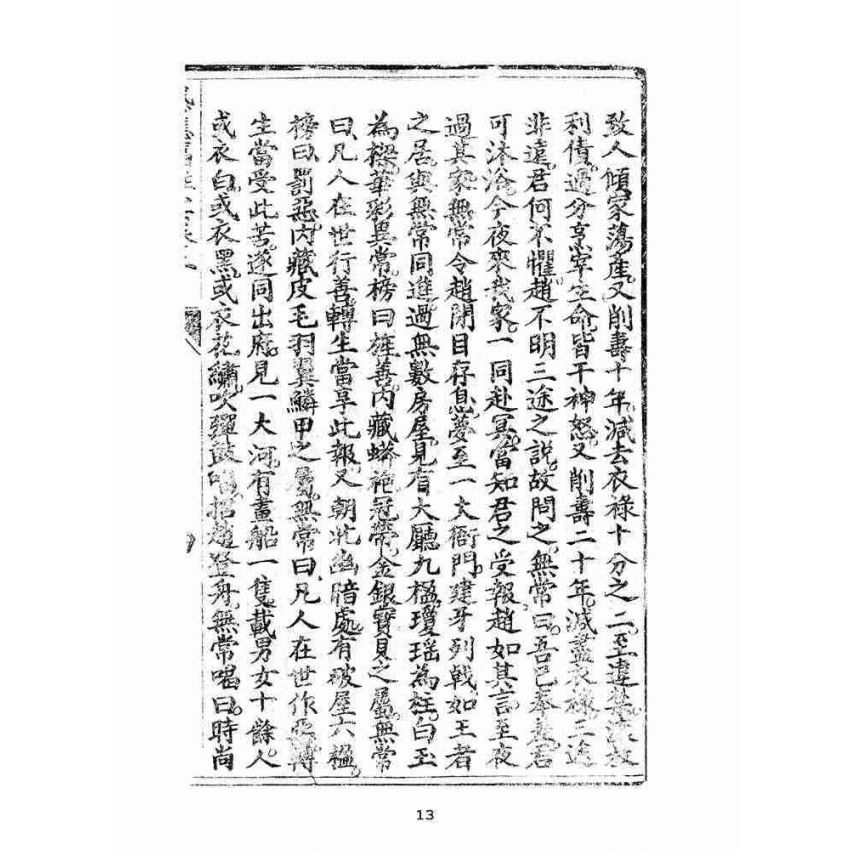 致人傾家蕩產。又削壽十年。減去衣祿十分之二。至違禁
利債。過分烹宰生命。皆干神怒。又削壽二十年。減盡衣祿。三途
非遠。君何不懼。趙不明三途之說。故問之。無常曰。吾已奉差。君
可沐浴。今夜來我家。一同赴冥。當知君之受報。趙如其言。至夜
過其家。無常令趙閉目存息。夢至一大衙門。建牙列戟。如王者
之居。與無常同進。過無數房屋。見有大廳九楹。瓊瑤為柱。白玉
為樑。華彩異常。榜曰旌善。內藏蟒袍冠帶。金銀寶貝之屬。無常
曰。凡人在世行善。轉生當享此報。又朝北幽暗處。有破屋六楹。
榜曰。罰惡。內藏皮毛羽翼鱗甲之屬。無常曰。凡人在世作惡。轉
生當受此苦。遂同出府。見一大河。有畫船一隻。載男女十餘人。
或衣白。或衣黑。或衣花繡。吹彈鼓唱。招趙登舟。無常喝曰。時尚
13